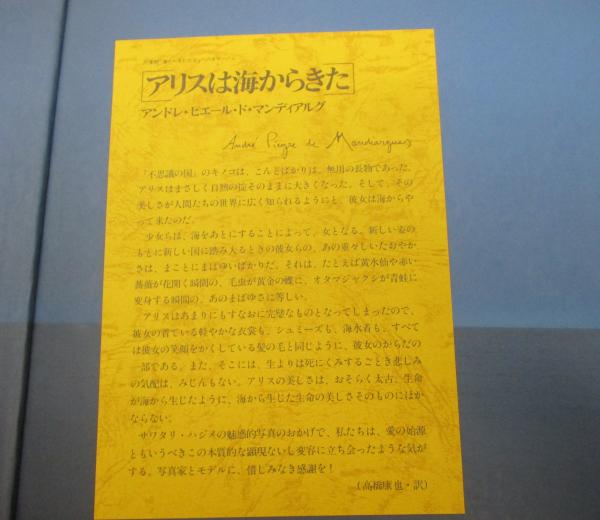 アリスは海からきた
アンドレ・ピエール・ド・マンディアルグ
André Pieyre de Mandiargues
「不思議の国」のキノコは、こんどばかりは、無用の長物であった。
アリスはまさしく自然の掟そのままに大きくなった。そして、その
美しさが人間たちの世界に広く知られるようにと、彼女は海からや
って来たのだ。
少女らは、海をあとにすることによって、女となる。新しい姿の
もとに新しい国に踏み入るときの彼女らの、あの重々しいたおやか
さは、まことにまばゆいばかりだ。それは、たとえば黄水仙や赤い
薔薇が花開く瞬間の、毛虫が黄金の蝶に、オタマジャクシが青蛙に
変身する瞬間の、あのまばゆさに等しい。
アリスはあまりにもすなおに完璧なものとなってしまったので、
彼女の着ている軽やかな衣裳も、シュミーズも、海水着も、すべて
は彼女の笑顔をかくしている髪の毛と同じように、彼女のからだの
一部である。また、そこには、生よりは死にくみするごとき悲しみ
の気配は、みじんもない。アリスの美しさは、おそらく太古、生命
が海から生じたように、海から生じた生命の美しさそのものにほか
ならない。
サワタリ・ハジメの魅惑的写真のおかげで、私たちは、愛の始源
ともいうべきこの本質的な顕現ないし変容に立ち会ったような気が
する。写真家とモデルに、惜しみなき感謝を!
（高橋康也・訳）